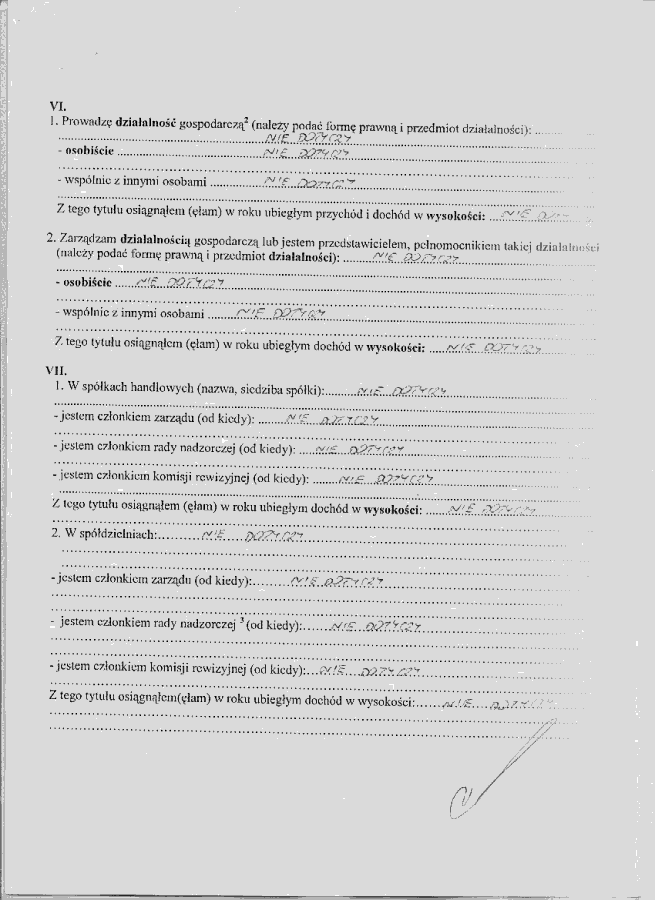 VI.
1. Prowadzę działalność gospodarczą² (należy podać formę prawną i przedmiot działalności): ..........
NIE DOTYCZY
- osobiście .......... NIE DOTYCZY
- wspólnie z innymi osobami .......... NIE DOTYCZY
Z tego tytułu osiągnąłem (ęłam) w roku ubiegłym przychód i dochód w wysokości: ..... NIE
2. Zarządzam działalnością gospodarczą lub jestem przedstawicielem, pełnomocnikiem takiej działalności
(należy podać formę prawną i przedmiot działalności): .......... NIE DOTYCZY
- osobiście ..... NIE DOTYCZY
- wspólnie z innymi osobami ....... NIE DOTYCZY
Z tego tytułu osiągnąłem (ęłam) w roku ubiegłym dochód w wysokości: ..... NIE DOTYCZY
VII.
1. W spółkach handlowych (nazwa, siedziba spółki):.......... NIE DOTYCZY
- jestem członkiem zarządu (od kiedy): ........ NIE DOTYCZY
- jestem członkiem rady nadzorczej (od kiedy): .... NIE DOTYCZY
- jestem członkiem komisji rewizyjnej (od kiedy): ........ NIE DOTYCZY
Z tego tytułu osiągnąłem (ęłam) w roku ubiegłym dochód w wysokości: ....... NIE DOTYCZY
2. W spółdzielniach:............ NIE DOTYCZY
- jestem członkiem zarządu (od kiedy):.......... NIE DOTYCZY
- jestem członkiem rady nadzorczej ³ (od kiedy):....... NIE DOTYCZY
- jestem członkiem komisji rewizyjnej (od kiedy):.... NIE DOTYCZY
Z tego tytułu osiągnąłem(ęłam) w roku ubiegłym dochód w wysokości:....... NIE DOTYCZY